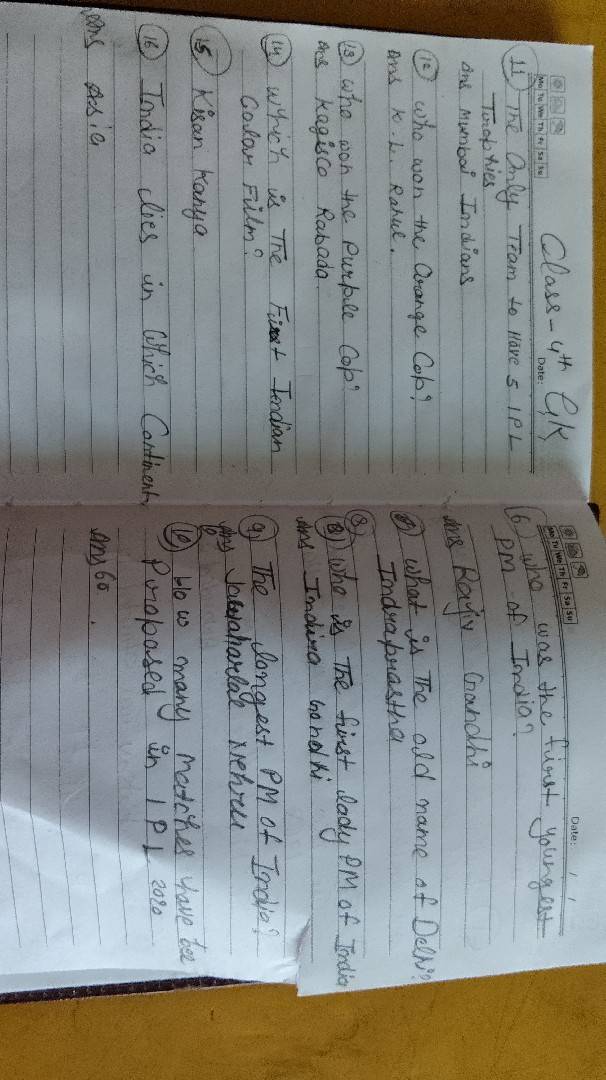 Class - 4th G.K
Date:
Mo Tu We Th Fr Sa Su
11) The Only Team to Have 5 IPL
Turophies
Ans Mumbai Indians
12) who won the Orange Cap?
Ans K. L. Rahul.
13) who won the Purple Cap?
Ans Kagiso Rabada
14) which is The First Indian
Colour Film?
15) Kisan Kanya
16) India lies in Which Continent,
Ans Asia
Mo Tu We Th Fr Sa Su
Date: / /
6) who was the first youngest
PM of India?
Ans Rajiv Gandhi
what is The old name of Delhi?
Indraprastha
8) who is The first lady PM of India
Ans Indira Gandhi
9) The longest PM of India?
Ans Jawaharlal Nehru
10) How many Matches have bee
Purposed in IPL 2020
Ans 60